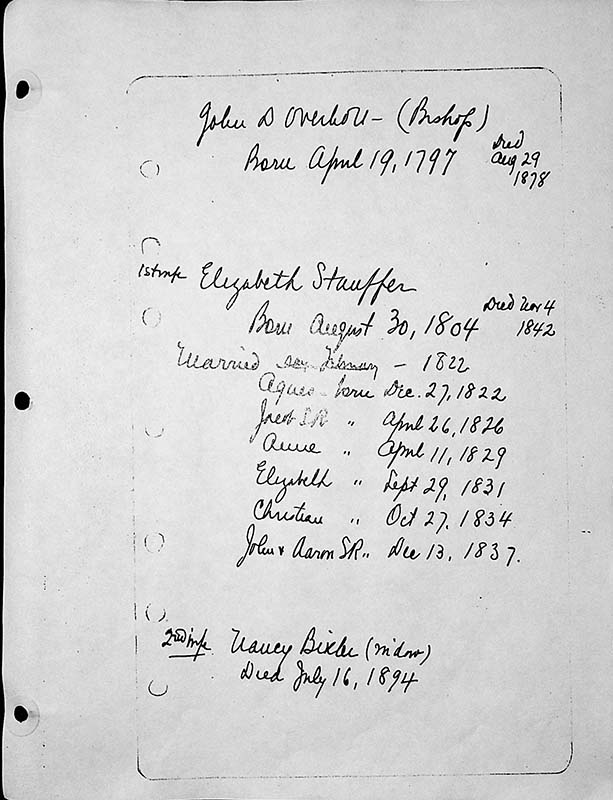 John D Overholt - (Bishop)
Born April 19, 1797
Died
Aug 29
1878
1st wife Elizabeth Stauffer
Born August 30, 1804
Died Nov 4
1842
Married February - 1822
Agnes - born Dec. 27, 1822
Jacob S.R. " April 26, 1826
Anne " April 11, 1829
Elizabeth " Sept 29, 1831
Christian " Oct 27, 1834
John & Aaron S.R. " Dec 13, 1837.
2nd wife Nancy Bixler (widow)
Died July 16, 1894